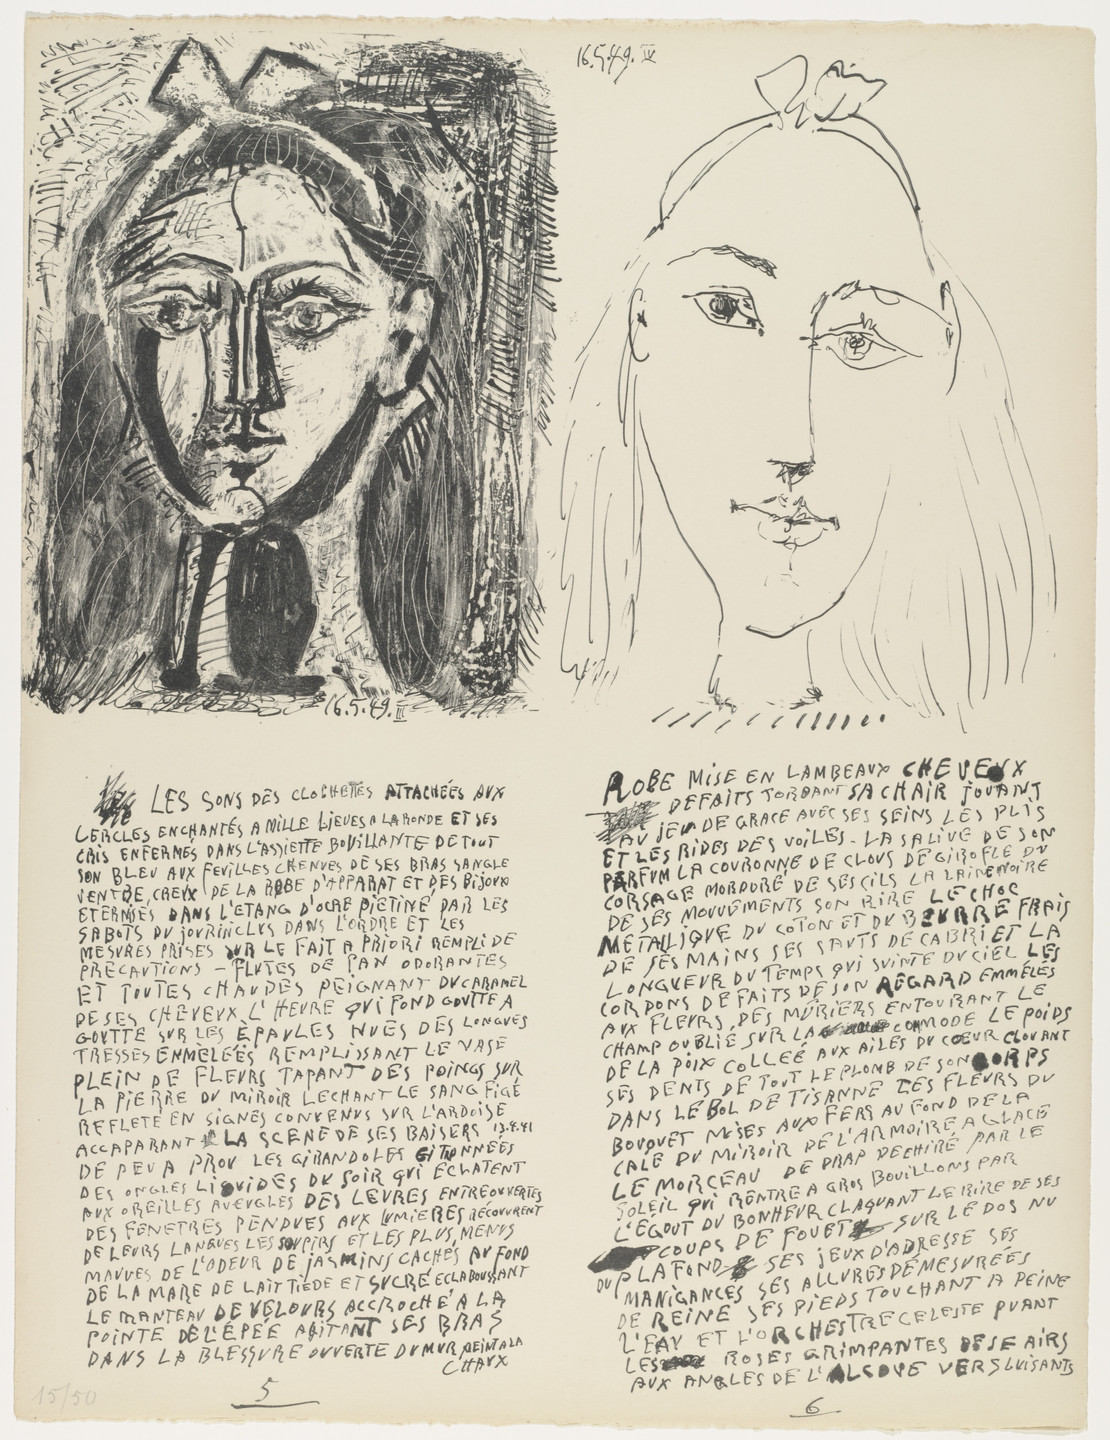 16.5.49. IV
16.5.49. II
LES SONS DES CLOCHETTES ATTACHÉES AUX
CERCLES ENCHANTÉS A MILLE LIEUES A LA RONDE ET SES
CRIS ENFERMES DANS L'ASSIETTE BOUILLANTE DE TOUT
SON BLEU AUX FEUILLES CHENUES DE SES BRAS SANGLE
VENTRE CREUX DE LA ROBE D'APPARAT ET DES BIJOUX
ETERNISÉS DANS L'ETANG D'OCRE PIETINÉ PAR LES
SABOTS DU JOUR INCLUS DANS L'ORDRE ET LES
MESURES PRISES SUR LE FAIT A PRIORI REMPLI DE
PRÉCAUTIONS – FLUTES DE PAN ODORANTES
ET TOUTES CHAUDES PEIGNANT DU CARAMEL
DE SES CHEVEUX L'HEURE QUI FOND GOUTTE A
GOUTTE SUR LES ÉPAULES NUES DES LONGUES
TRESSES ENMELÉES REMPLISSANT LE VASE
PLEIN DE FLEURS TAPANT DES POINGS SUR
LA PIERRE DU MIROIR LECHANT LE SANG FIGÉ
REFLETE EN SIGNES CONVENUS SUR L'ARDOISE
ACCAPARANT LA SCENE DE SES BAISERS 13.4.41
DE PEU A PROU LES GIRANDOLES CITRONNÉES
DES ONGLES LIQUIDES DU SOIR QUI ÉCLATENT
AUX OREILLES AVEUGLES DES LEVRES ENTREOUVERTES
DES FENETRES PENDUES AUX LUMIERES RECOUVRENT
DE LEURS LANGUES LES SOUPIRS ET LES PLUS MENUS
MAUVES DE L'ODEUR DE JASMINS CACHÉS AU FOND
DE LA MARE DE LAIT TIÈDE ET SUCRÉ ECLABOUSSANT
LE MANTEAU DE VELOURS ACCROCHÉ A LA
POINTE DE L'ÉPÉE AGITANT SES BRAS
DANS LA BLESSURE OUVERTE DU MUR PEINT A LA
CHAUX
5
15/50
ROBE MISE EN LAMBEAUX CHEVEUX
DEFAITS TORDANT SA CHAIR JOUANT
AU JEU DE GRACE AVEC SES SEINS LES PLIS
ET LES RIDES DES VOILES - LA SALIVE DE SON
PARFUM LA COURONNE DE CLOUS DE GIROFLE DU
CORSAGE MORDORÉ DE SES CILS LA LAINE NOIRE
DE SES MOUVEMENTS SON RIRE LE CHOC
METALLIQUE DU COTON ET DU BEURRE FRAIS
DE SES MAINS SES SAUTS DE CABRI ET LA
LONGUEUR DU TEMPS QUI SUINTE DU CIEL LES
CORDONS DEFAITS DE SON REGARD EMMELÉS
AUX FLEURS DES MÛRIERS ENTOURANT LE
CHAMP OUBLIÉ SUR LA COMMODE LE POIDS
DE LA POIX COLLEÉ AUX AILES DU COEUR CLOUANT
SES DENTS DE TOUT LE PLOMB DE SON CORPS
DANS LE BOL DE TISANNE LES FLEURS DU
BOUQUET MISES AUX FERS AU FOND DE LA
CALE DU MIROIR DE L'ARMOIRE A GLACE
LE MORCEAU DE DRAP DECHIRÉ PAR LE
SOLEIL QUI RENTRE A GROS BOUILLONS PAR
L'ÉGOUT DU BONHEUR CLAQUANT LE RIRE DE SES
COUPS DE FOUET SUR LE DOS NU
DU PLAFOND SES JEUX D'ADRESSE SES
MANIGANCES SES ALLURES DÉMESURÉES
DE REINE SES PIEDS TOUCHANT A PEINE
L'EAU ET L'ORCHESTRE CELESTE PUANT
LES ROSES GRIMPANTES DE SE AIRS
AUX ANGLES DE L'ALCOVE VERS LUISANTS
6